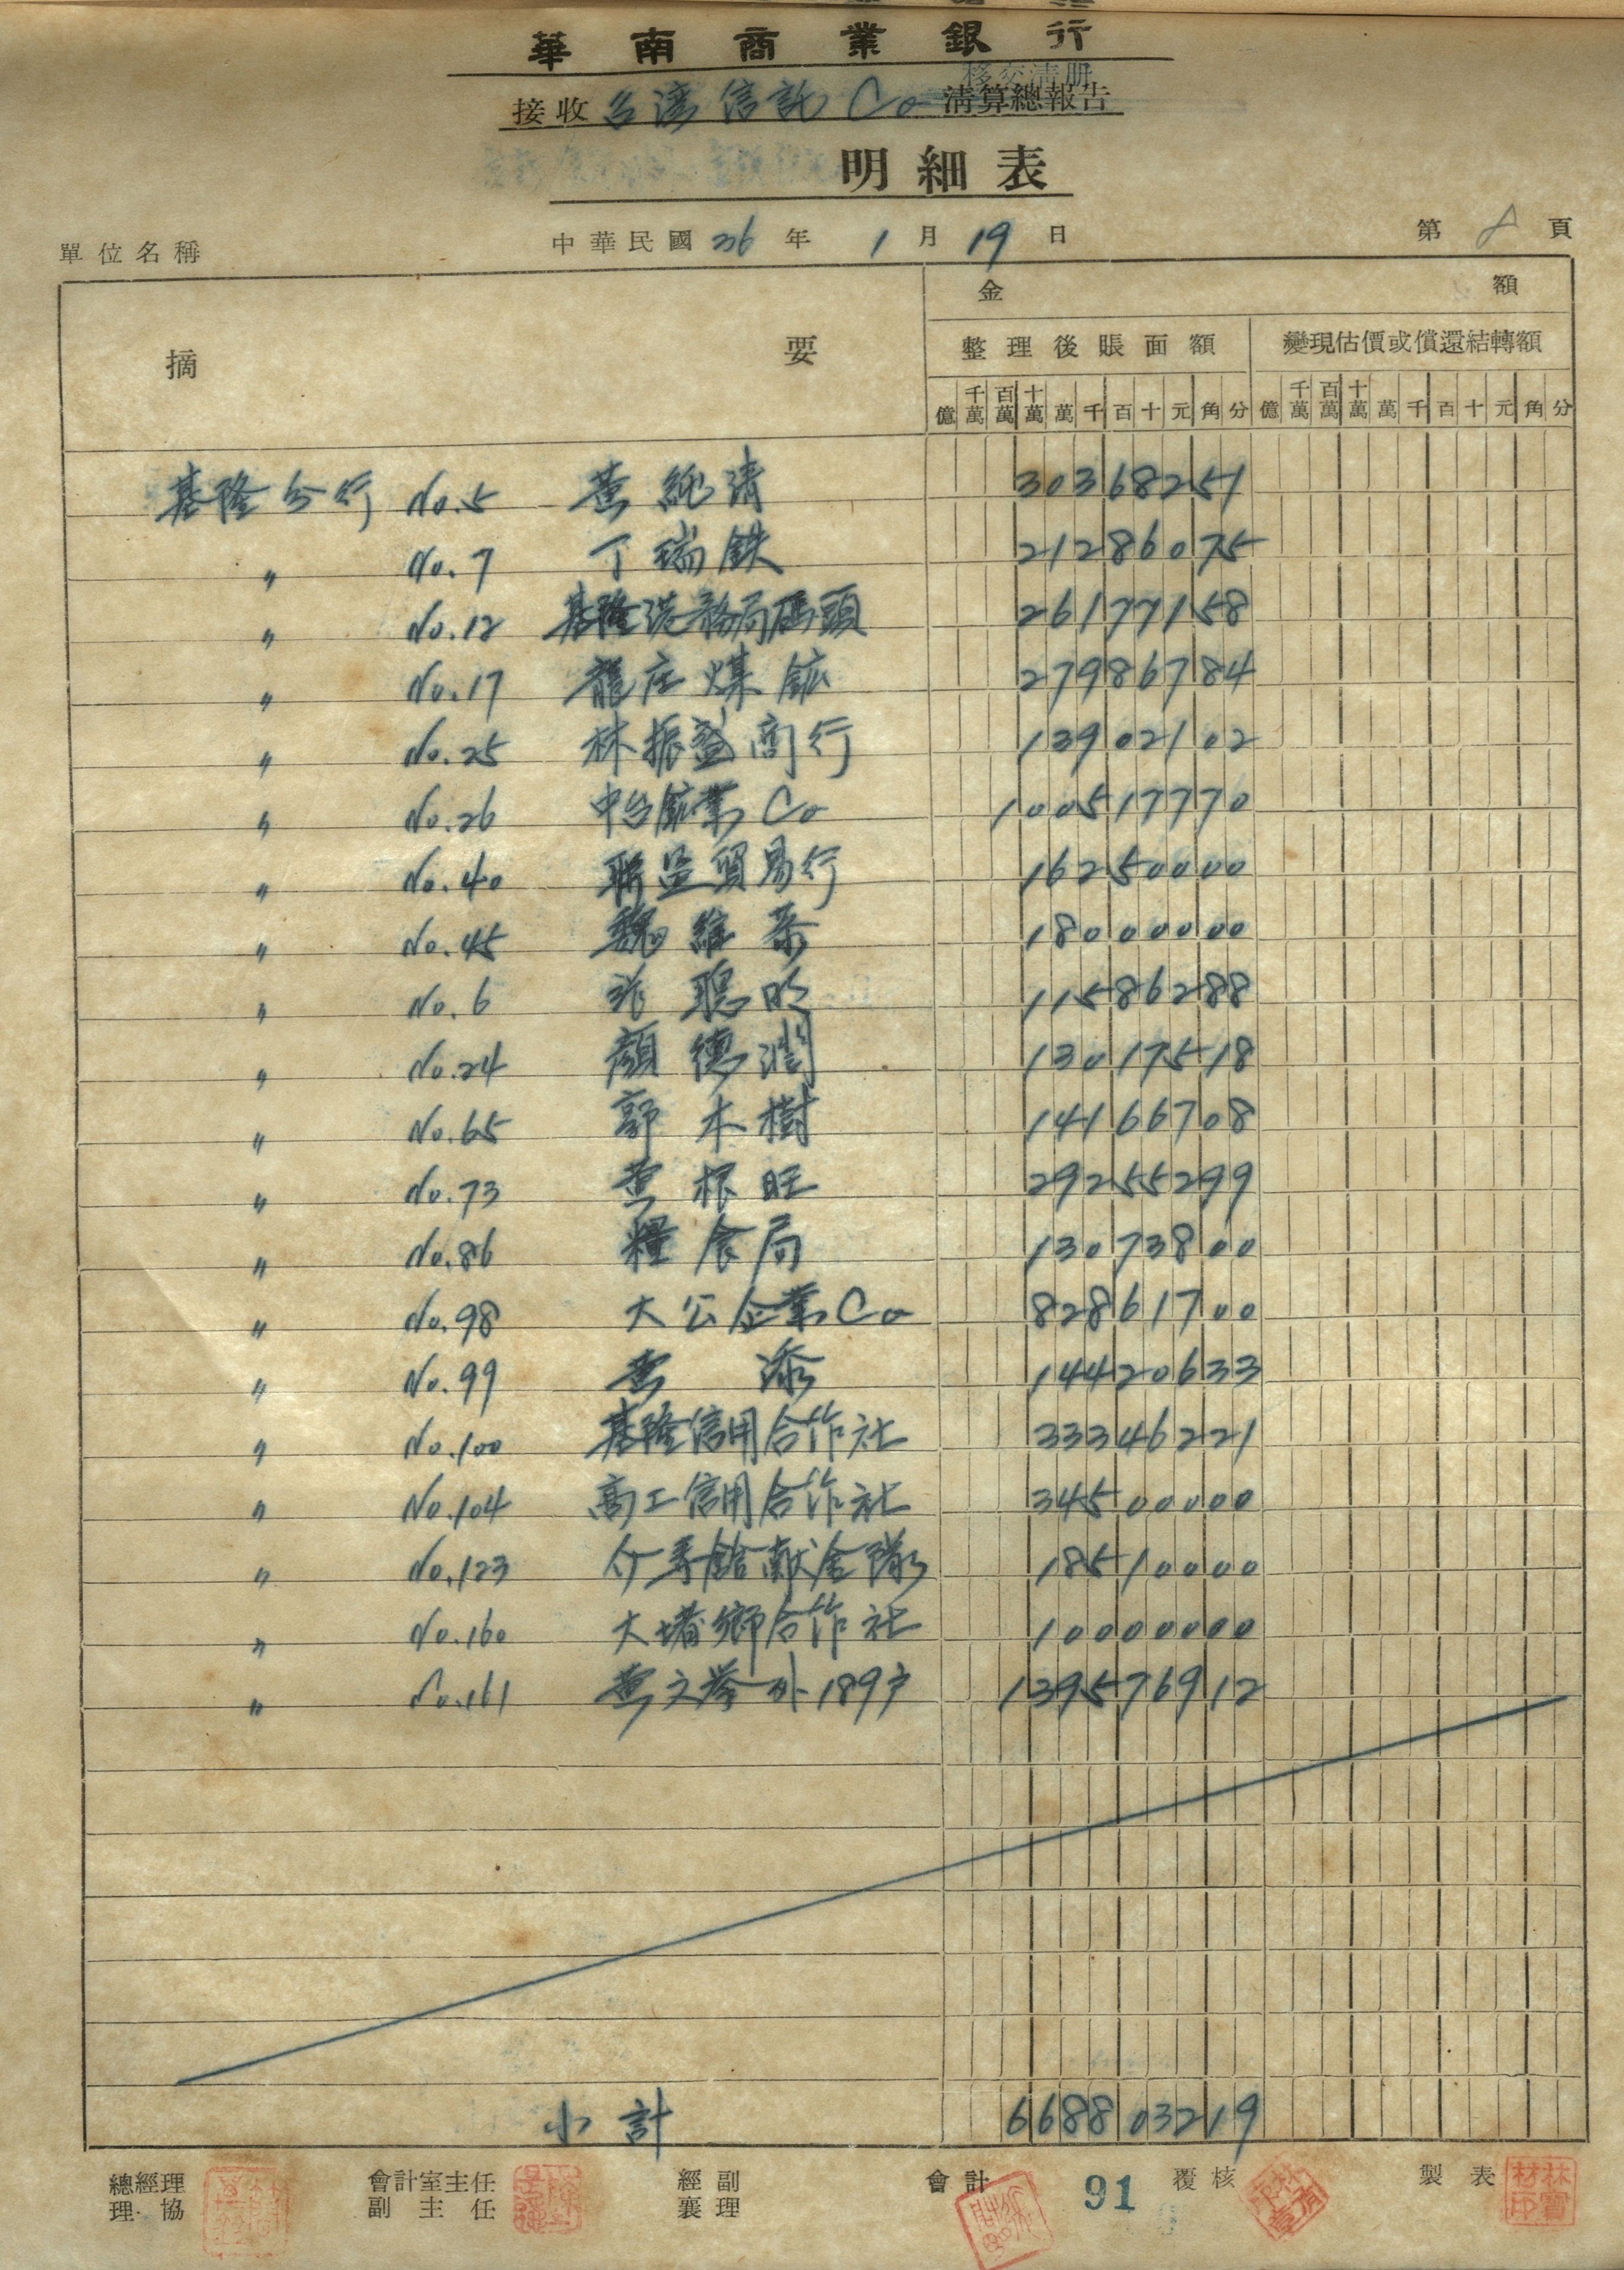 華南商業銀行
接收 台湾信託Co 清算總報告
移交清册
明細表
單位名稱 中華民國36年1月19日 第8頁
摘要 金額
整理後賬面額 變現估價或償還結轉額
億 千萬 百萬 十萬 萬 千 百 十 元 角 分 億 千萬 百萬 十萬 萬 千 百 十 元 角 分
基隆分行 No.5 黃純清 30368251
〃 No.7 丁瑞鉄 21286075
〃 No.12 基隆港務局碼頭 26177158
〃 No.17 龍庄煤鉱 27986784
〃 No.25 林振盛商行 13902102
〃 No.26 中台鉱業Co 100517770
〃 No.40 聯益貿易行 16250000
〃 No.45 魏維 18000000
〃 No.6 聰明 11586288
〃 No.24 顏德潤 13017518
〃 No.65 郭木樹 14166708
〃 No.73 黃根旺 29255299
〃 No.86 糧食局 13073800
〃 No.98 大公企業Co 82861700
〃 No.99 黃添 14420633
〃 No.100 基隆信用合作社 33346221
〃 No.104 高工信用合作社 34500000
〃 No.123 介壽館献金隊 18510000
〃 No.160 大堵鄉合作社 10000000
〃 No.161 黃文举外189戶 139576912
小計 668803219
總經理 會計室主任 經副 會計 91 覆核 製表
理協 副主任 襄理
林寶材印